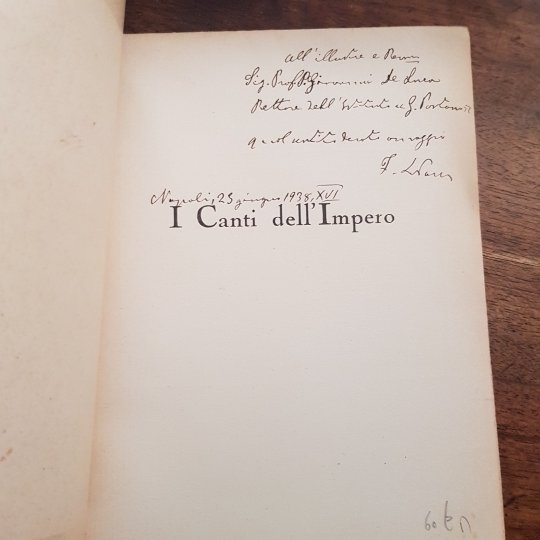 all'illustre e Rev.
Sig. Prof. P. Giovanni de Luca
Rettore dell'Istituto G.
qual omaggio
F.
Napoli, 25 giugno 1938, XVI
I Canti dell'Impero
60